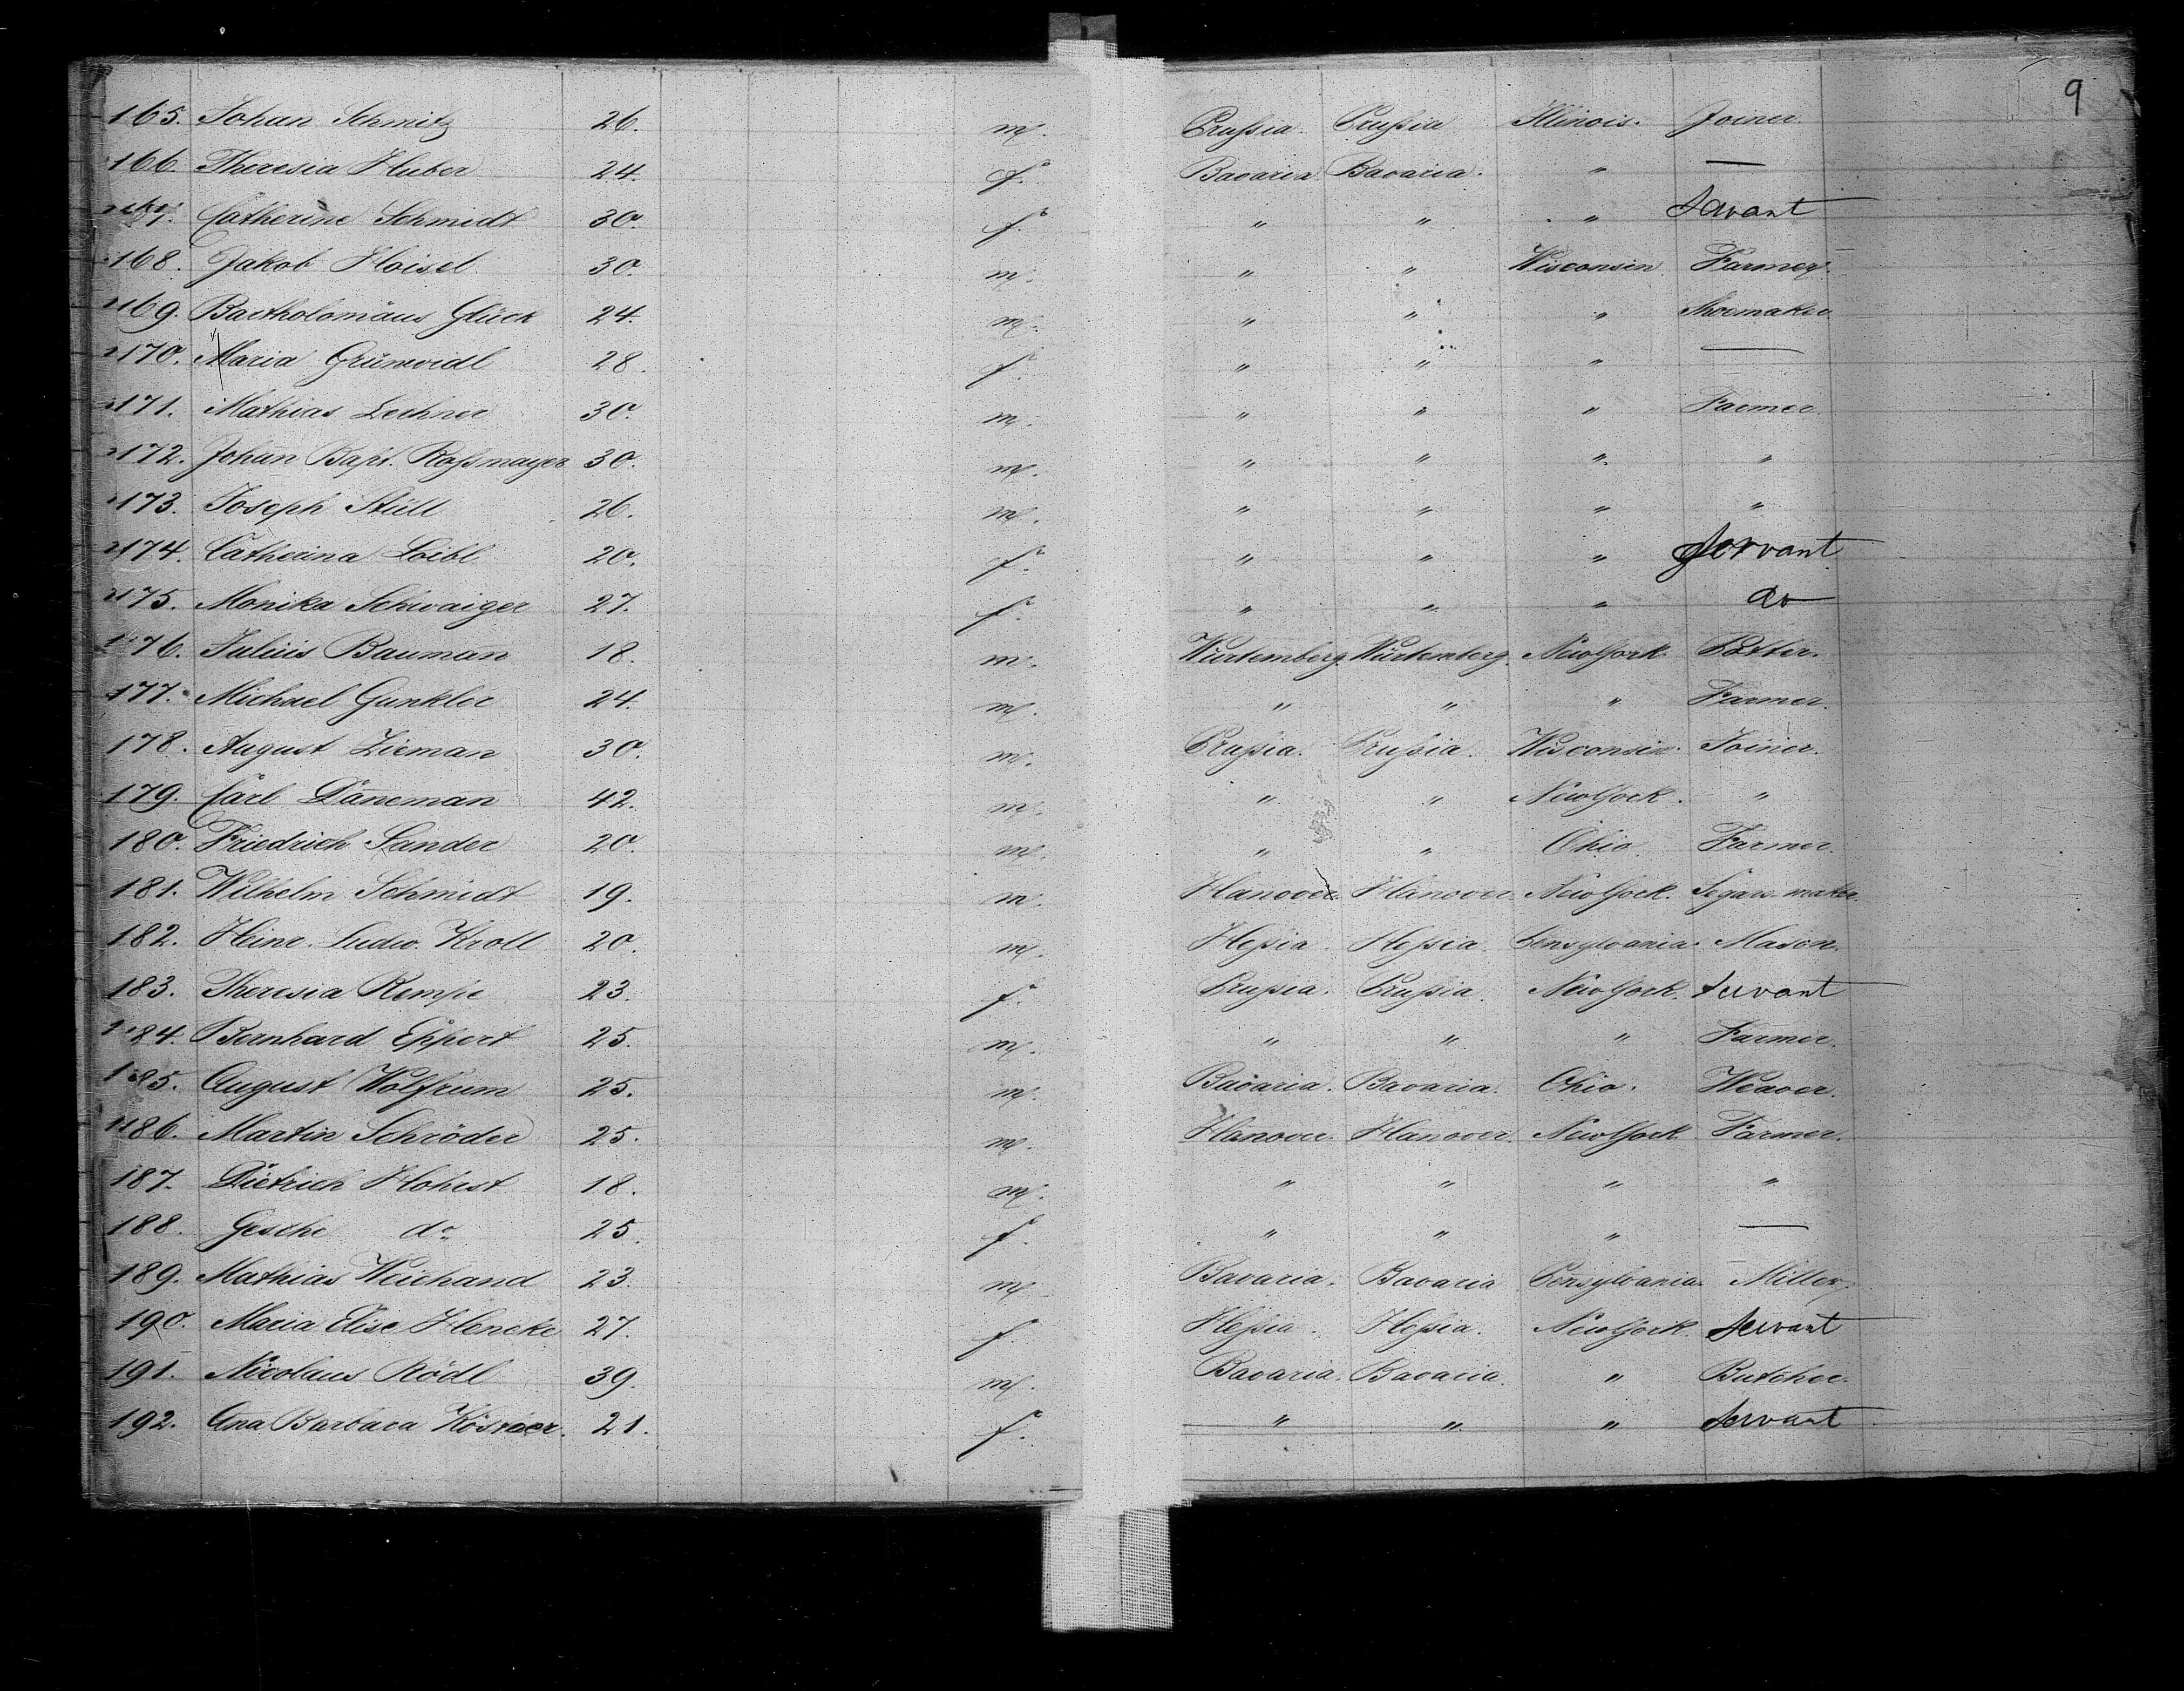 9
165. Johan Schmitz 26. m. Prußia. Prußia Illinois. Joiner.
166. Theresia Huber 24. f. Bavaria. Bavaria. " —
167. Catherine Schmidt 30. f. " " " Servant
168. Jakob Hoisel 30. m. " " Wisconsin Farmer.
169. Bartholomäus Glück 24. m. " " " Shoemaker
170. Maria Grünwedl 28. f. " " " —
171. Mathias Lechner 30. m. " " " Farmer
172. Johan Bapt. Roßmayer 30. m. " " " "
173. Joseph Stüll 26. m. " " " "
174. Catherina Loibl 20. f. " " " Servant
175. Monika Schwaiger 27. f. " " " do
176. Julius Bauman 18. m. Würtemberg. Würtemberg. NewYork. Potter.
177. Michael Gunkler 24. m. " " " Farmer.
178. August Zieman 30. m. Prußia. Prußia. Wisconsin. Joiner.
179. Carl Däneman 42. m. " " NewYork. "
180. Friedrich Sander 20. m. " " Ohio. Farmer.
181. Wilhelm Schmidt 19. m. Hanover. Hanover. NewYork. Segars maker.
182. Heinr. Ludw. Kroll 20. m. Heßia. Heßia. Pensylvania. Mason.
183. Theresia Rempe 23. f. Prußia. Prußia. NewYork. Servant
184. Bernhard Eppert 25. m. " " " Farmer.
185. August Wolfrum 25. m. Bavaria. Bavaria. Ohio. Weaver.
186. Martin Schröder 25. m. Hanover. Hanover. NewYork Farmer.
187. Dietrich Hohest 18. m. " " " "
188. Gesche do 25. f. " " " —
189. Mathias Weichand 23. m. Bavaria. Bavaria Pensylvania. Miller.
190. Maria Elise Hencke 27. f. Heßia. Heßia. NewYork. Servant
191. Nicolaus Rödl 39. m. Bavaria. Bavaria. " Butcher.
192. Ana Barbara 21. f. " " " Servant